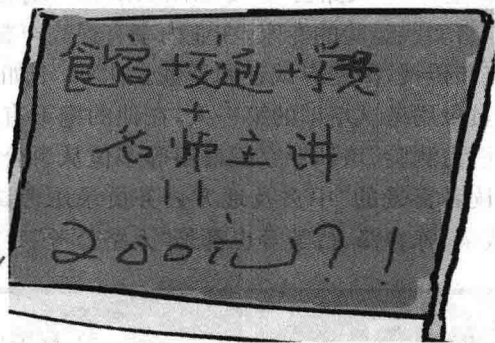 食宿+交通+学费
+
名师主讲
11
200元？！